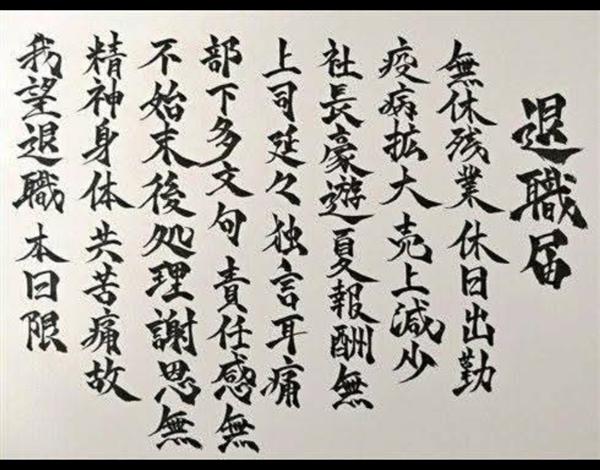 退職届
無休残業休日出勤
疫病拡大売上減少
社長豪遊夏報酬無
上司延々独言耳痛
部下多文句責任感無
不始末後処理謝思無
精神身体共苦痛故
我望退職本日限